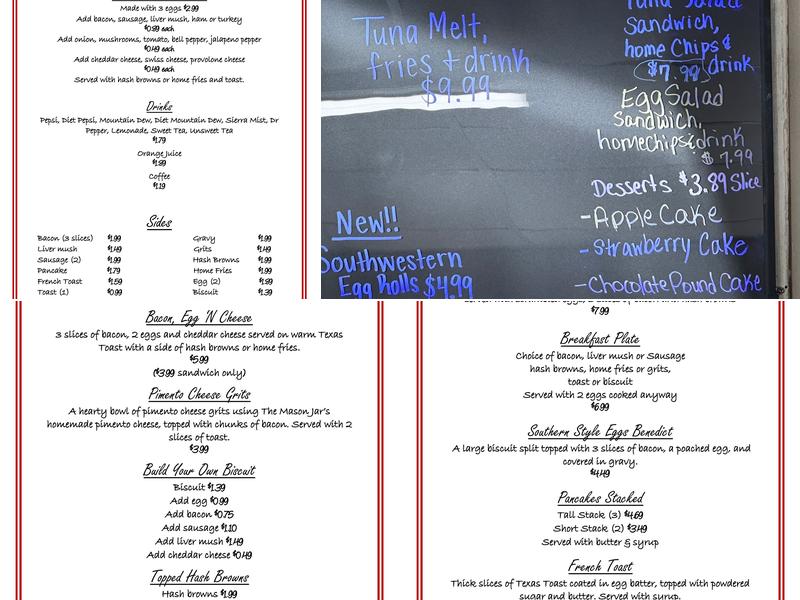 Made with 3 eggs $2.99
Add bacon, sausage, liver mush, ham or turkey
$0.99 each
Add onion, mushrooms, tomato, bell pepper, jalapeno pepper
$0.49 each
Add cheddar cheese, swiss cheese, provolone cheese
$0.49 each
Served with hash browns or home fries and toast.
Drinks
Pepsi, Diet Pepsi, Mountain Dew, Diet Mountain Dew, Sierra Mist, Dr
Pepper, Lemonade, Sweet Tea, Unsweet Tea
$1.79
Orange Juice
$1.99
Coffee
$1.19
Sides
Bacon (3 slices) $1.99 Gravy $1.99
Liver mush $1.49 Grits $1.49
Sausage (2) $1.99 Hash Browns $1.99
Pancake $1.79 Home Fries $1.99
French Toast $1.59 Egg (2) $1.99
Toast (1) $0.99 Biscuit $1.39
Tuna Melt,
fries + drink
$9.99
New!!
Southwestern
Egg Rolls $4.99
Tuna Salad
Sandwich,
home Chips &
$7.99 drink
Egg Salad
Sandwich,
home chips & drink
$7.99
Desserts $3.89 Slice
- Apple Cake
- Strawberry Cake
- Chocolate Pound Cake
Bacon, Egg 'N Cheese
3 slices of bacon, 2 eggs and cheddar cheese served on warm Texas
Toast with a side of hash browns or home fries.
$5.99
($3.99 sandwich only)
Pimento Cheese Grits
A hearty bowl of pimento cheese grits using The Mason Jar's
homemade pimento cheese, topped with chunks of bacon. Served with 2
slices of toast.
$3.99
Build Your Own Biscuit
Biscuit $1.39
Add egg $0.99
Add bacon $0.75
Add sausage $1.10
Add liver mush $1.49
Add cheddar cheese $0.49
Topped Hash Browns
Hash browns $1.99
$7.99
Breakfast Plate
Choice of bacon, liver mush or Sausage
hash browns, home fries or grits,
toast or biscuit
Served with 2 eggs cooked anyway
$6.99
Southern Style Eggs Benedict
A large biscuit split topped with 3 slices of bacon, a poached egg, and
covered in gravy.
$4.49
Pancakes Stacked
Tall Stack (3) $4.69
Short Stack (2) $3.49
Served with butter & syrup
French Toast
Thick slices of Texas Toast coated in egg batter, topped with powdered
sugar and butter. Served with syrup.